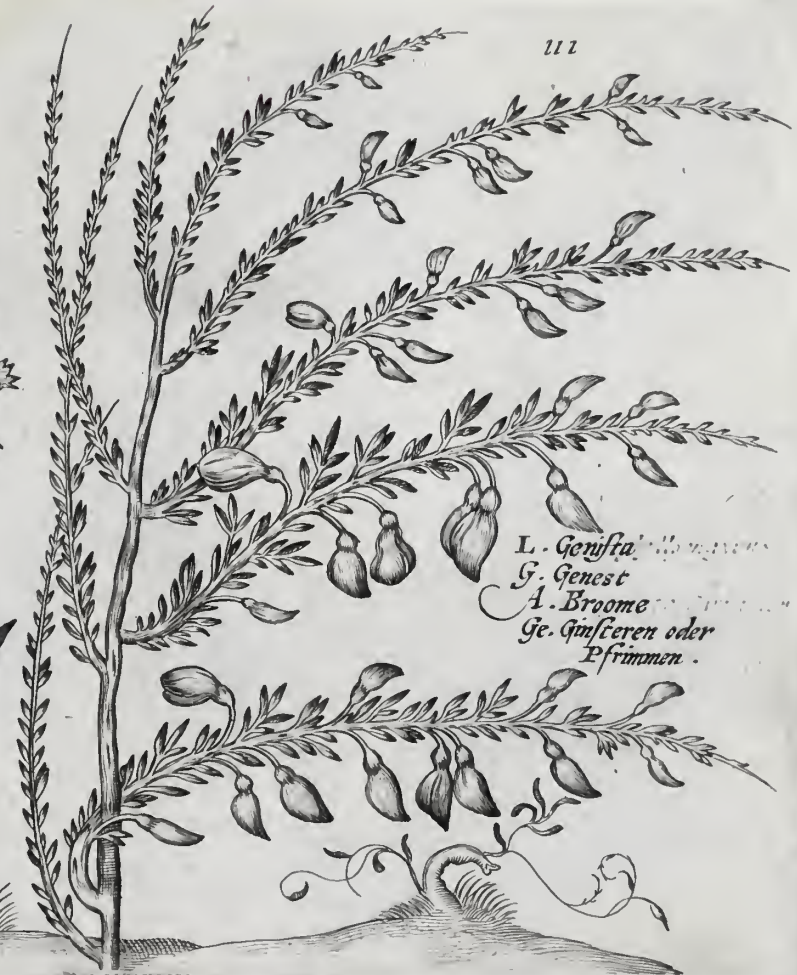 111
L. Geniſta
G. Genest
A. Broome
Ge. Ginſteren oder
Pfrimmen.